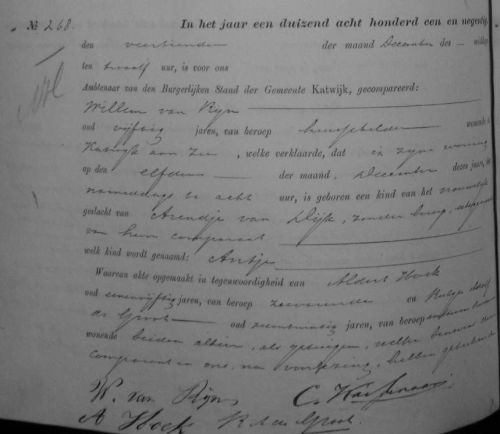 № 268.
In het jaar een duizend acht honderd een en negentig,
den veertienden der maand December des
ten twaalf uur, is voor ons
Ambtenaar van den Burgerlijken Stand der Gemeente Katwijk, gecompareerd:
Willem van Rijn
oud vijftig jaren, van beroep wonende
Katwijk aan Zee, welke verklaarde, dat in zijne woning
op den elfden der maand December dezes jaars, des
namiddags te acht uur, is geboren een kind van het vrouwelijk
geslacht van Arendje van Dijk, zonder beroep, echtgenoot
van hem comparant
welk kind wordt genaamd: Antje
Waarvan akte opgemaakt in tegenwoordigheid van Aldert Hoek
oud jaren, van beroep en
de Groot oud jaren, van beroep
wonende beiden alhier, als getuigen, welke benevens den
comparant en ons, na voorlezing, hebben geteekend
W. van Rijn
A Hoek